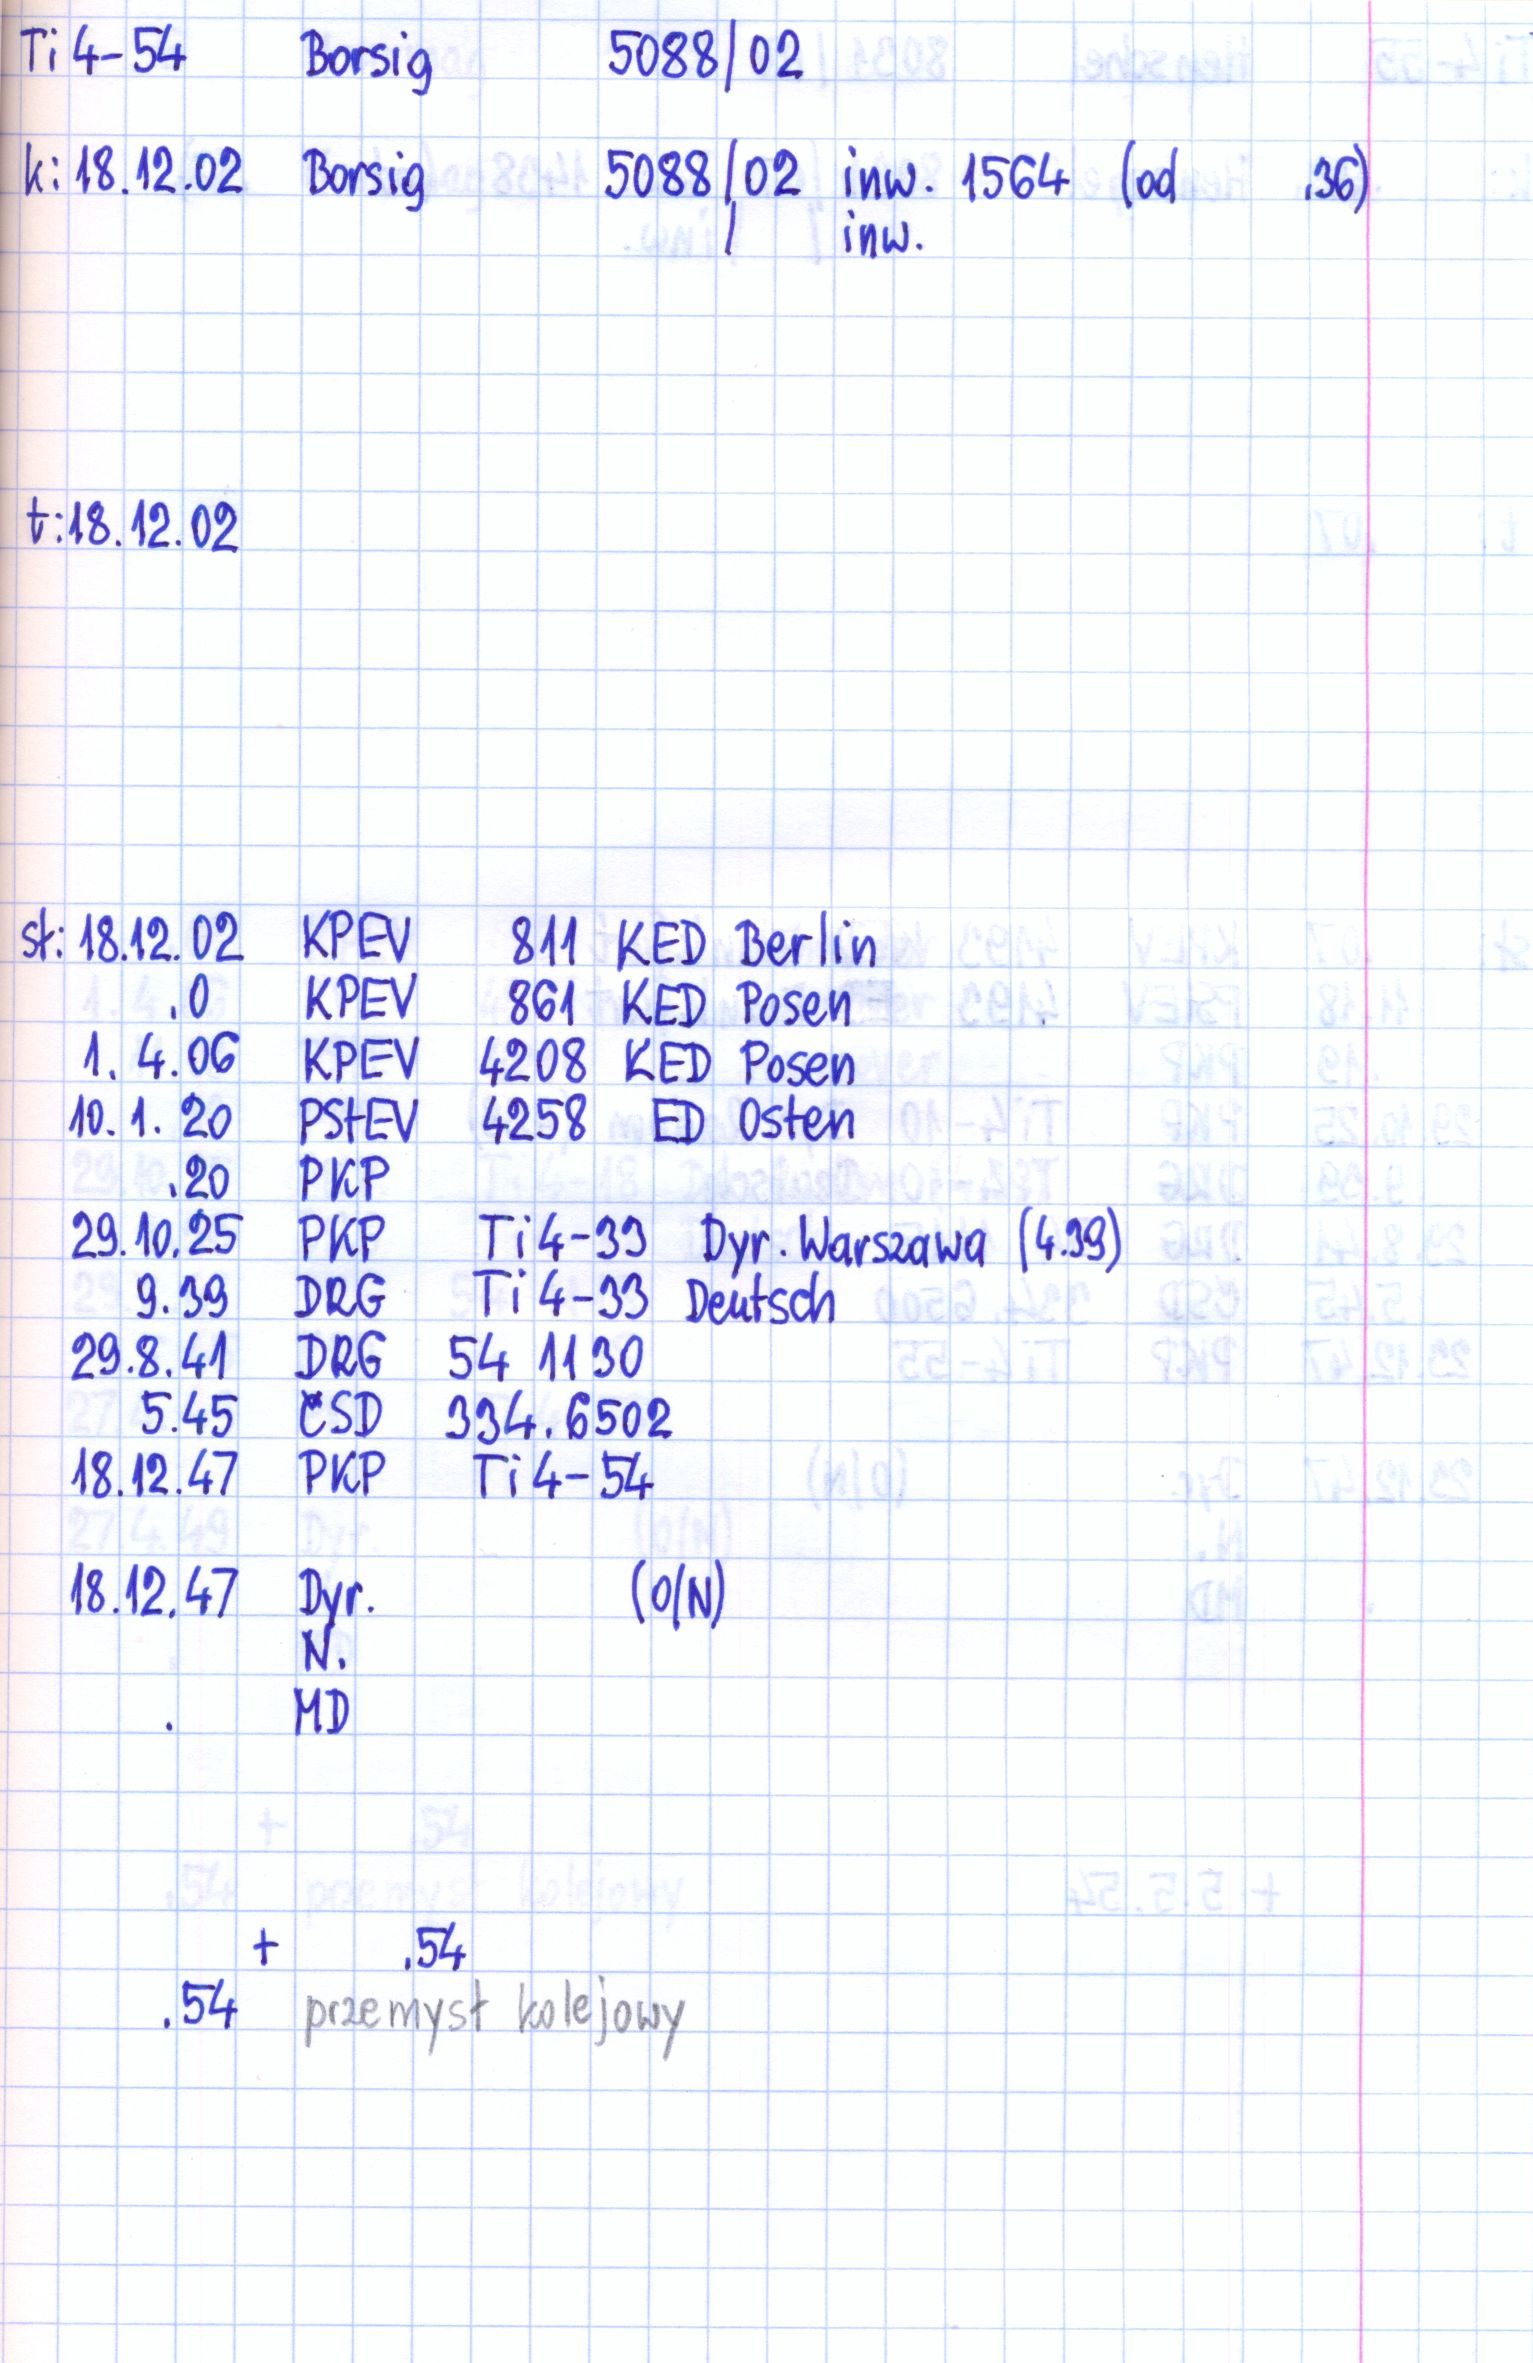 Ti 4-54 Borsig 5088/02
k: 18.12.02 Borsig 5088/02 inw. 1564 (od .36)
/ inw.
t: 18.12.02
st: 18.12.02 KPEV 811 KED Berlin
.0 KPEV 861 KED Posen
1. 4.06 KPEV 4208 KED Posen
10. 1. 20 PStEV 4258 ED Osten
.20 PKP
29.10.25 PKP Ti 4-33 Dyr. Warszawa (4.39)
9.39 DRG Ti 4-33 Deutsch
29.8.41 DRG 54 1130
5.45 ČSD 334.6502
18.12.47 PKP Ti 4-54
18.12.47 Dyr. (O/N)
N.
. MD
+ .54
.54 przemysł kolejowy